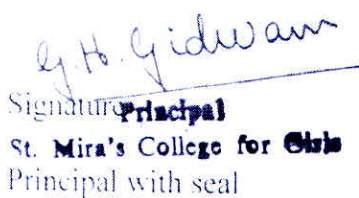 G. H. Gidwani
Signature Principal
St. Mira's College for Girls
Principal with seal